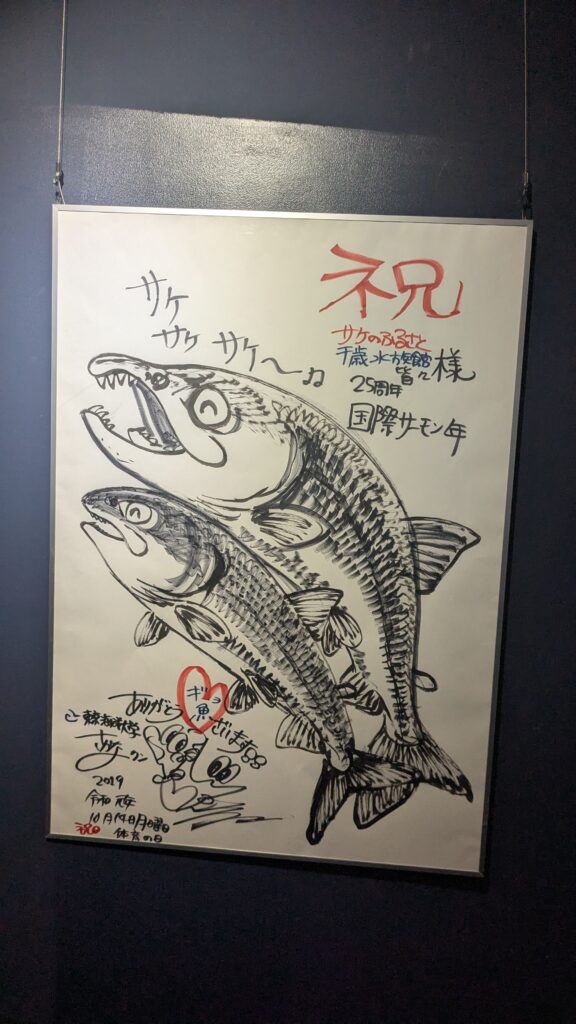 祝
サケ
サケ サケ〜♫
サケのふるさと
千歳水族館
皆々様
25周年
国際サーモン年
ありがとう
ギョ
魚
ざいます
東京海洋大学
さかなクン
2019
令和元年
10月14日月曜日
祝日 体育の日